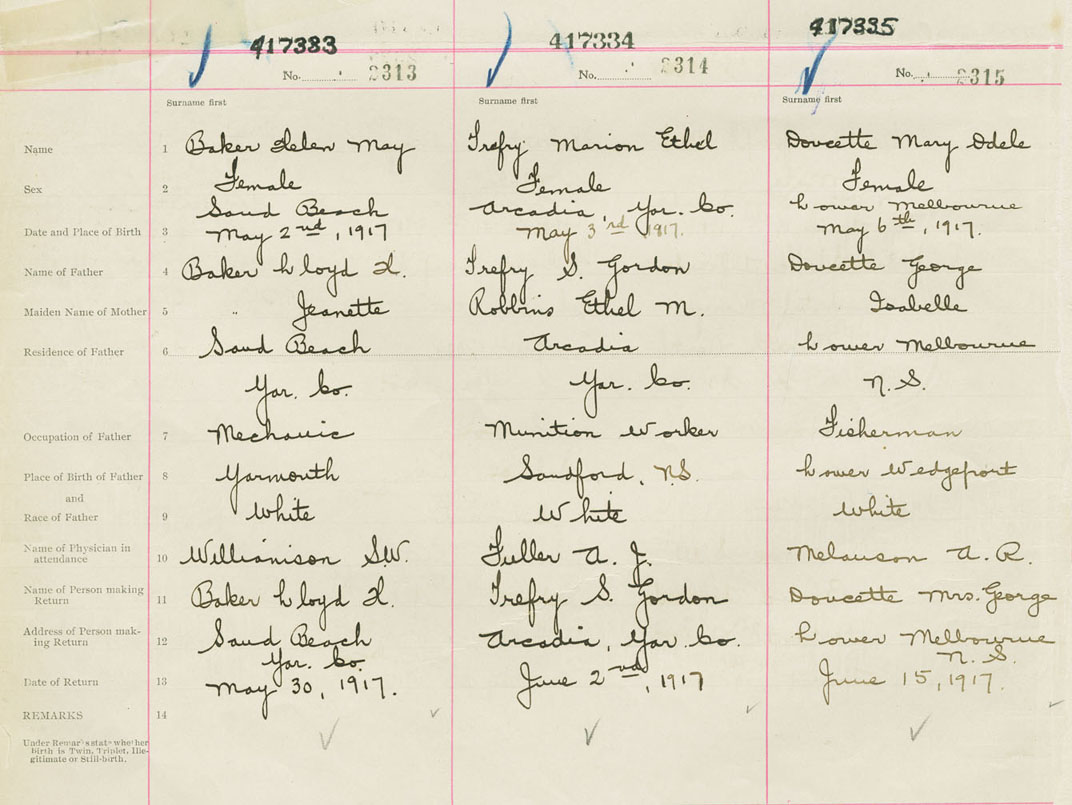 417383 417334 417335
No. 2313 No. 2314 No. 2315
Surname first Surname first Surname first
Name 1 Baker Helen May Trefry Marion Ethel Doucette Mary Odele
Sex 2 Female Female Female
Sand Beach Arcadia, Yar. Co. Lower Melbourne
Date and Place of Birth 3 May 2nd, 1917 May 3rd 1917. May 6th, 1917.
Name of Father 4 Baker Lloyd H. Trefry S. Gordon Doucette George
Maiden Name of Mother 5 " Jeanette Robbins Ethel M. Isabelle
Residence of Father 6 Sand Beach Arcadia Lower Melbourne
Yar. Co. Yar. Co. N. S.
Occupation of Father 7 Mechanic Munition Worker Fisherman
Place of Birth of Father 8 Yarmouth Sandford, N.S. Lower Wedgeport
and
Race of Father 9 White White White
Name of Physician in
attendance 10 Williamson S.W. Fuller A. J. Melanson A. R.
Name of Person making
Return 11 Baker Lloyd H. Trefry S. Gordon Doucette Mrs. George
Address of Person mak-
ing Return 12 Sand Beach Arcadia, Yar. Co. Lower Melbourne
Yar. Co. N. S.
Date of Return 13 May 30, 1917. June 2nd, 1917 June 15, 1917.
REMARKS 14
Under Remarks state whether
birth is Twin, Triplet, Ille-
gitimate or Still-birth.